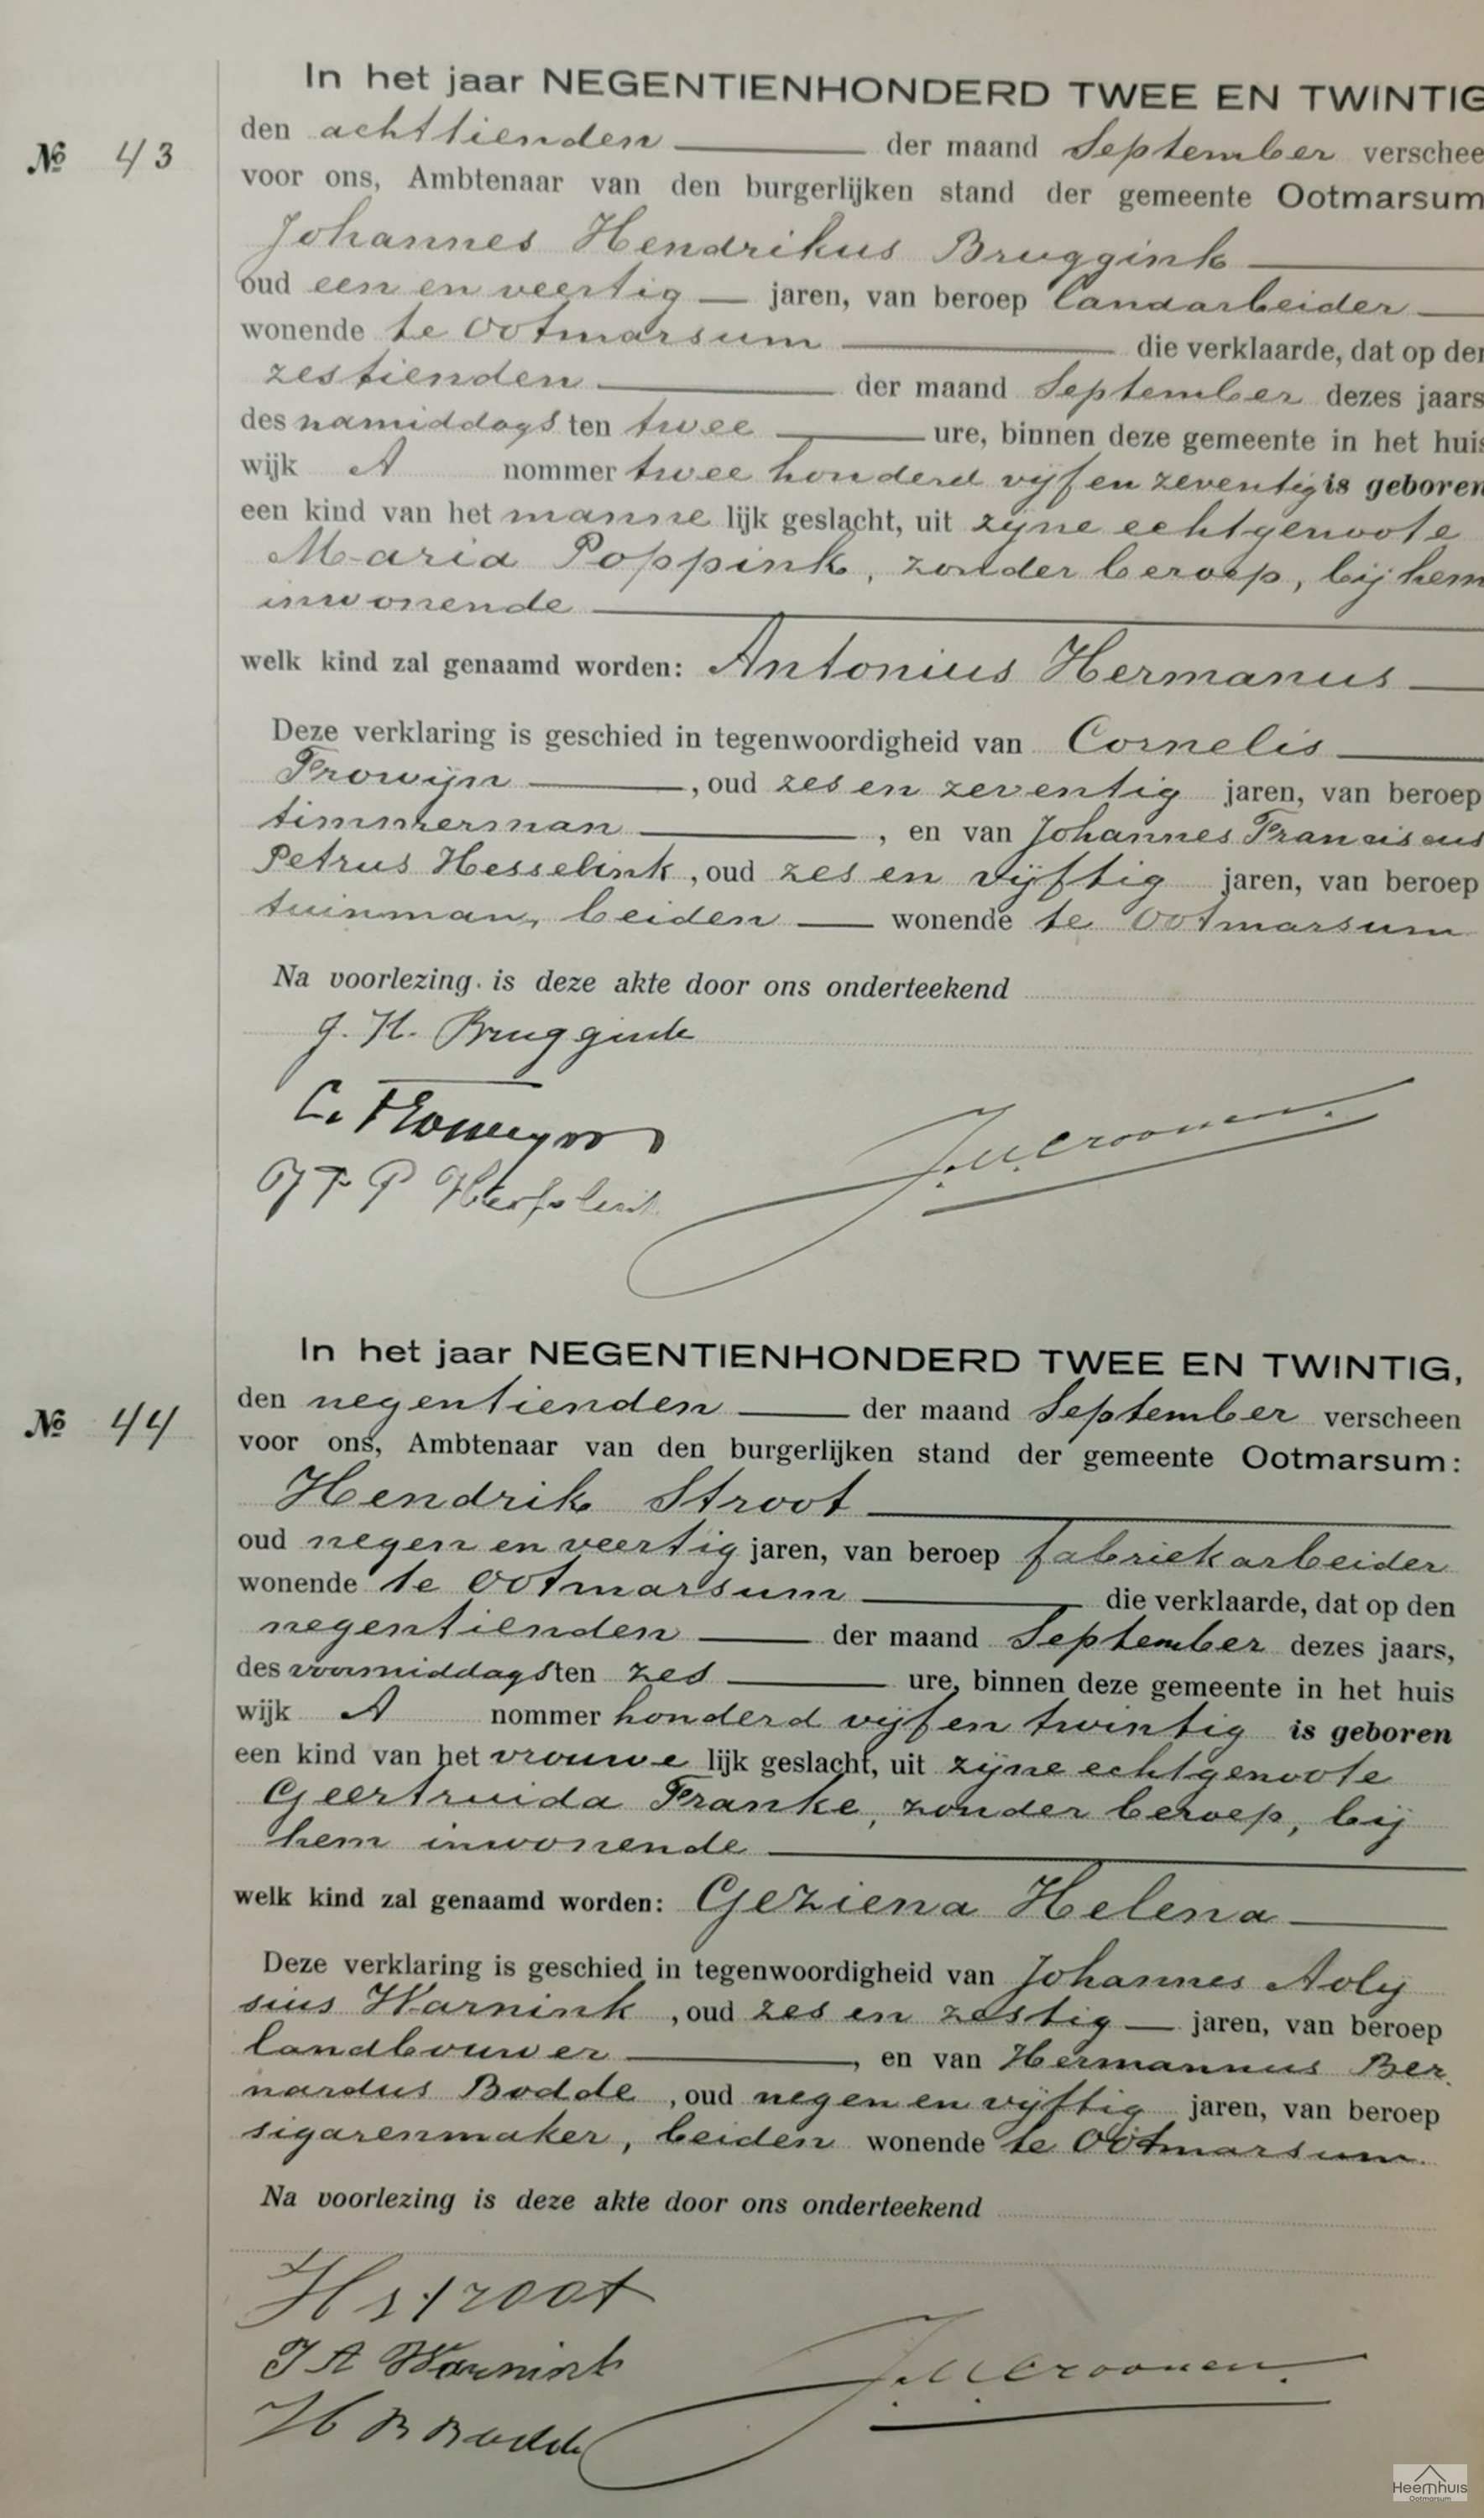 In het jaar NEGENTIENHONDERD TWEE EN TWINTIG
№ 43
den achttienden der maand September verschee
voor ons, Ambtenaar van den burgerlijken stand der gemeente Ootmarsum
Johannes Hendrikus Bruggink
oud een en veertig jaren, van beroep landarbeider
wonende te Ootmarsum die verklaarde, dat op den
zestienden der maand September dezes jaars
des namiddags ten twee ure, binnen deze gemeente in het huis
wijk A nommer twee honderd vijf en zeventig is geboren
een kind van het manne lijk geslacht, uit zijne echtgenoote
Maria Poppink, zonder beroep, bij hem
inwonende
welk kind zal genaamd worden: Antonius Hermanus
Deze verklaring is geschied in tegenwoordigheid van Cornelis
Frowijn, oud zes en zeventig jaren, van beroep
timmerman, en van Johannes Franciscus
Petrus Hesselink, oud zes en vijftig jaren, van beroep
tuinman, beiden wonende te Ootmarsum
Na voorlezing is deze akte door ons onderteekend
J. H. Bruggink
C. Froweyn
J F P Hesselink
J.M. Croonen.
In het jaar NEGENTIENHONDERD TWEE EN TWINTIG,
№ 44
den negentienden der maand September verscheen
voor ons, Ambtenaar van den burgerlijken stand der gemeente Ootmarsum:
Hendrik Stroot
oud negen en veertig jaren, van beroep fabriekarbeider
wonende te Ootmarsum die verklaarde, dat op den
negentienden der maand September dezes jaars,
des voormiddags ten zes ure, binnen deze gemeente in het huis
wijk A nommer honderd vijf en twintig is geboren
een kind van het vrouwe lijk geslacht, uit zijne echtgenoote
Geertruida Franke, zonder beroep, bij
hem inwonende
welk kind zal genaamd worden: Geziena Helena
Deze verklaring is geschied in tegenwoordigheid van Johannes Aoly
sius Warnink, oud zes en zestig jaren, van beroep
landbouwer, en van Hermannus Ber
nardus Bodde, oud negen en vijftig jaren, van beroep
sigarenmaker, beiden wonende te Ootmarsum.
Na voorlezing is deze akte door ons onderteekend
H Stroot
J A Warnink
H B Bodde
J.M. Croonen.
Heemhuis
Ootmarsum